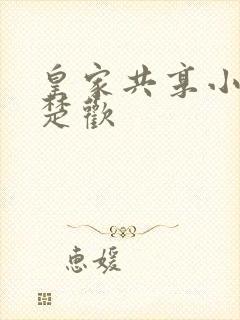 皇家共享小
楚歡
惠媛